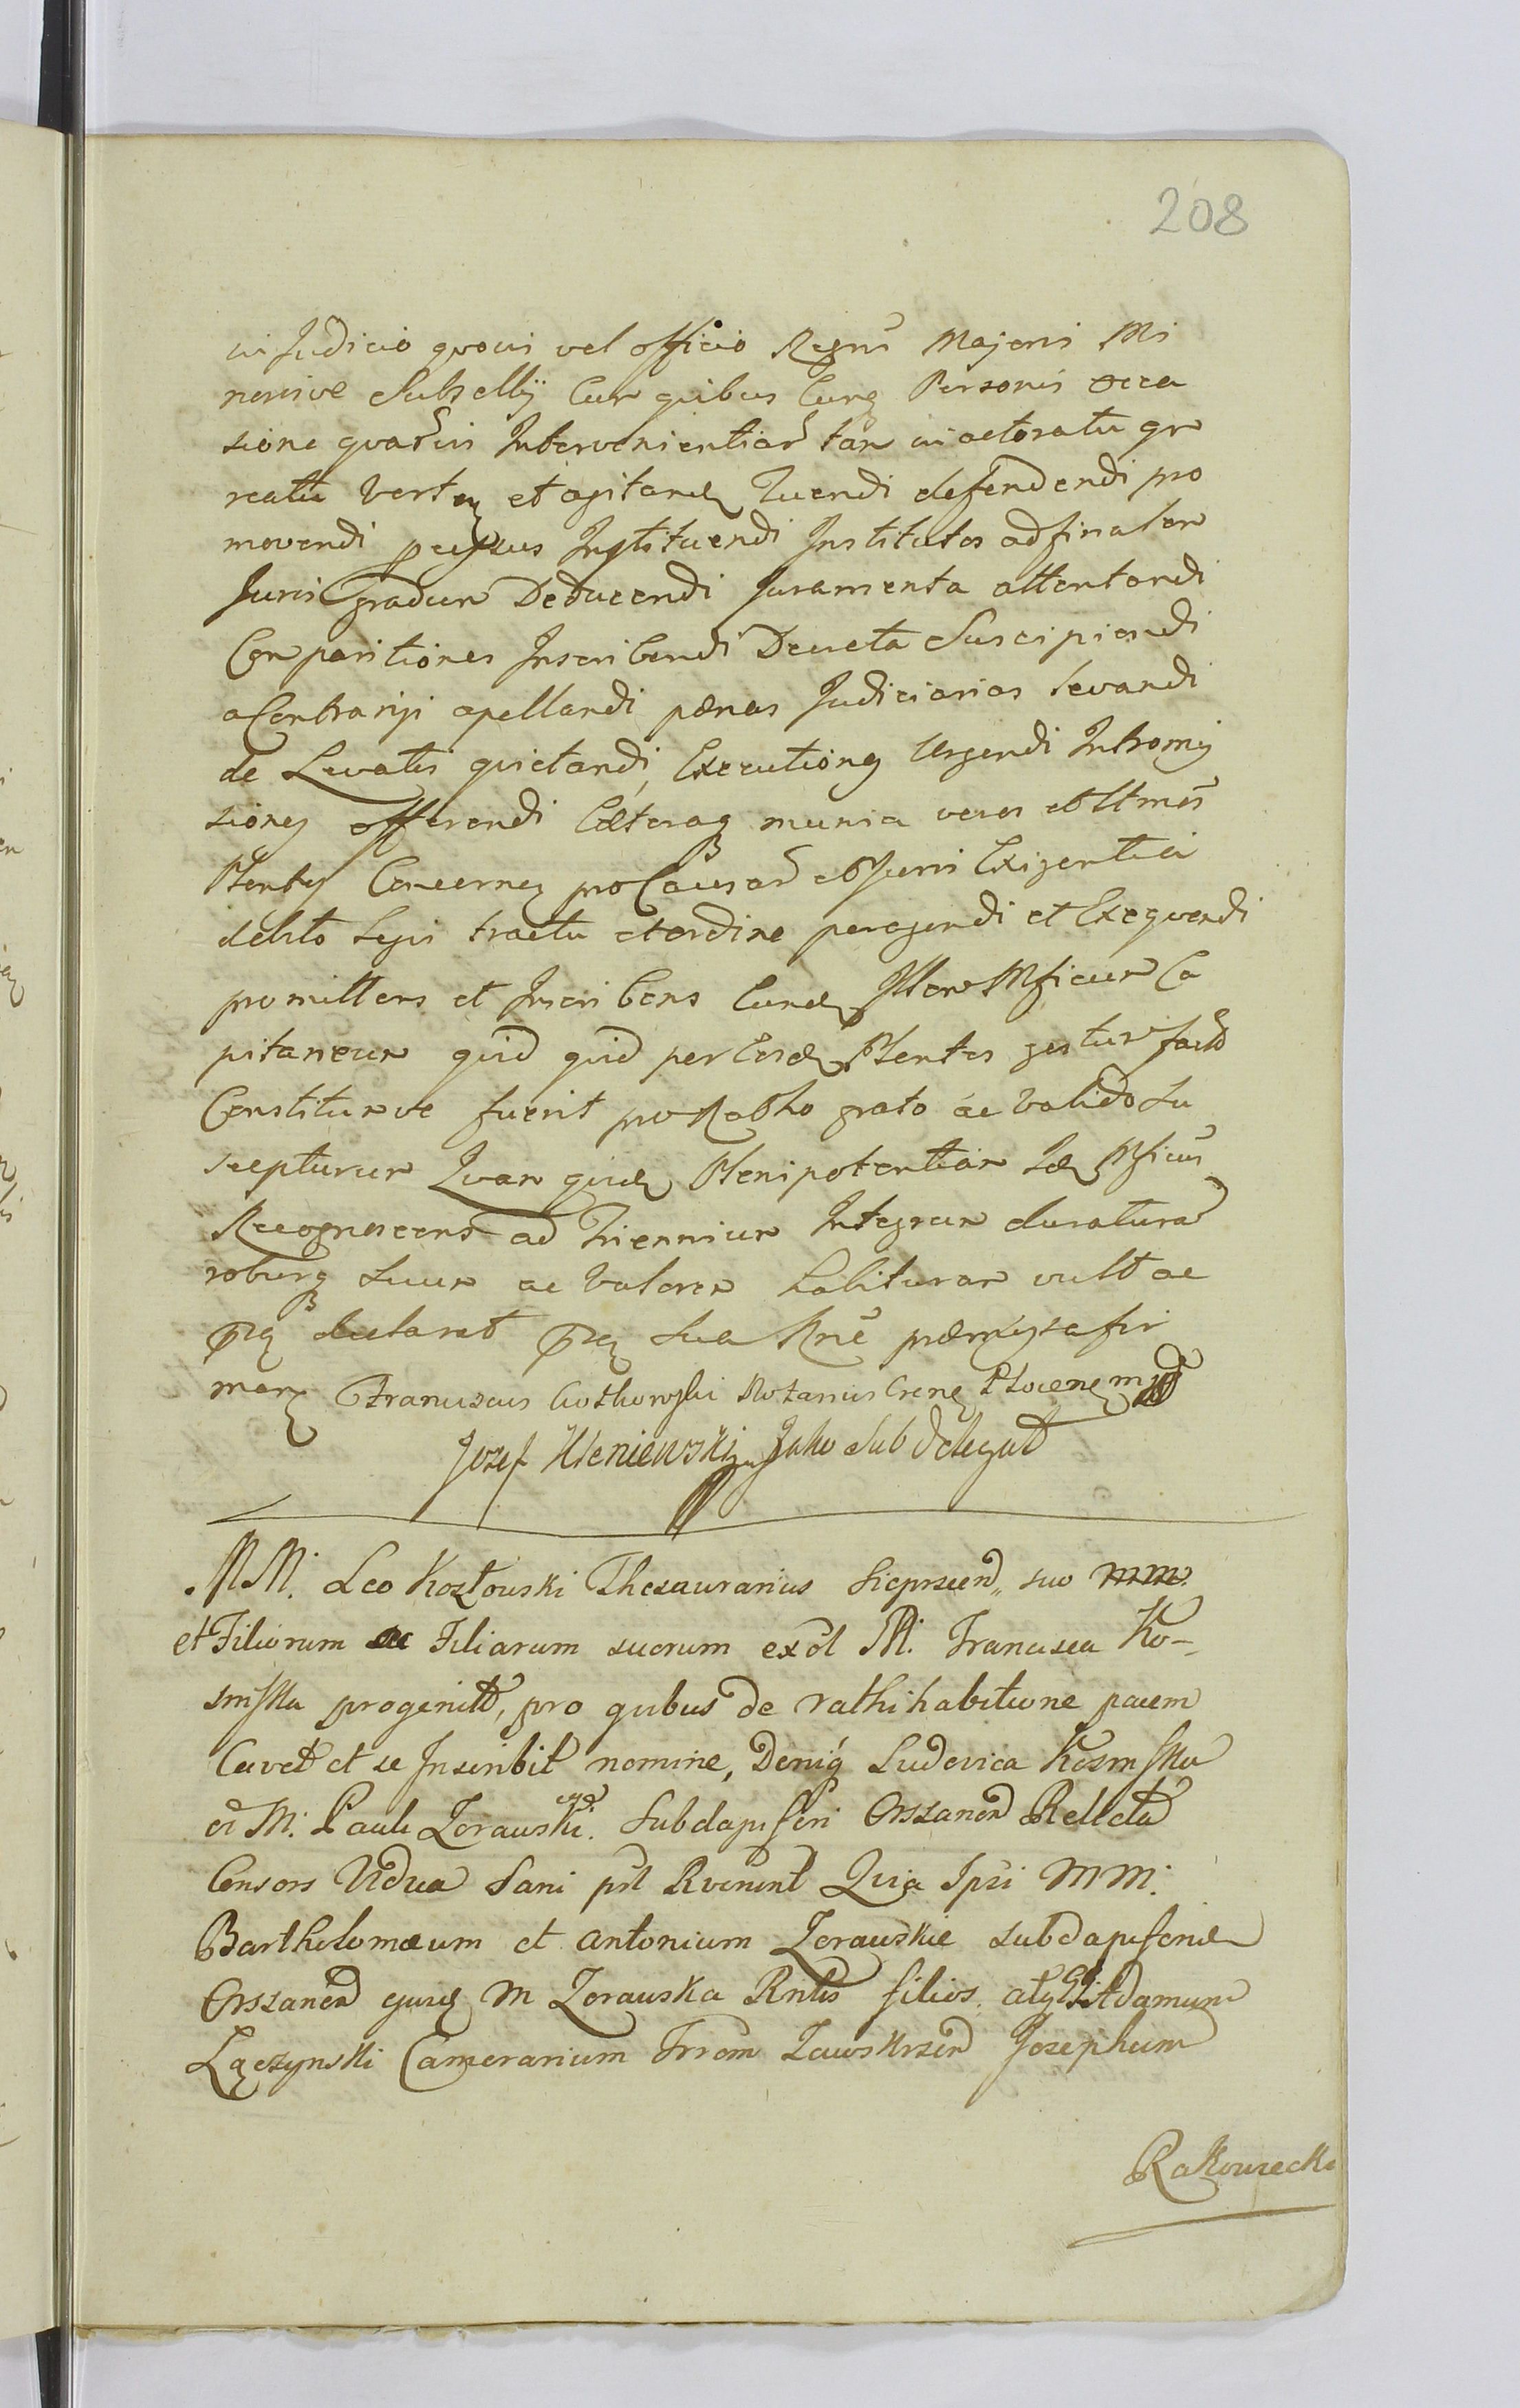 208
in Judicio quovis vel officio Regni Majoris Mi
norisve Subsellij Cum quibusCunq Personis occa
sione quarūvis Intervenientiar̄ tam in actoratu qm
reatu Verten et agitand Tuendi defendendi pro
movendi Instituendi Institutos ad finalem
Juris gradum Deducendi Juramenta attentandi
Comparitiones Inscribendi Decreta Suscipiendi
a Contrarijs apellandi pænas Judiciarias Levandi
de Levatis quietandi, Executiones Urgendi Intromis
siones offerendi Cæteraq munia veros et Ltmos
Plentes Concernen pro Causar̄ et Juris Exigentia
debito Legis tractu et ordine peragendi et Exequendi
promittens et Inscribens Eund Illem Mficum Ca
pitaneum quid quid per Eosd Plentes gestum factū
Constitumve fuerit pro Rabho grato ac Valido su
scepturum Quam quid Plenipotentiam Id Mficus
Recognoscens ad Trienniũm Integrum duraturam
roburq suum ac Valorem habituram vult ac
pn̄q declarat pn̄q sua Rne præmissa fir
man Franciscus Notarius Crenc Plocenc mp
Jozef Kleniewski Jako Sub Delegat
MM. Leo Kozłowski Thesaurarius Sieprscen suo mm.
et Filiorum ac Filiarum suorum ex ol M. Francisca Ko-
smska progenit, pro quibus de rathihabitione pacem
Cavet et se Inscribit nomine, Deniq Ludovica Kosmska
ol M. Pauli Zorawski. Subdapiferi Orszanen Relicta
Consors Vidua Sani pnt Rvernnt Quia Ipsi MM.
Bartholomæum et Antonium Zorawskie subdapiferid
Orszanen ejusd M Zorawska Rntis filios. atq GG Adamum
Łączynski Camerarium Trrom Zawskrzen Josephum
Rakowiecki